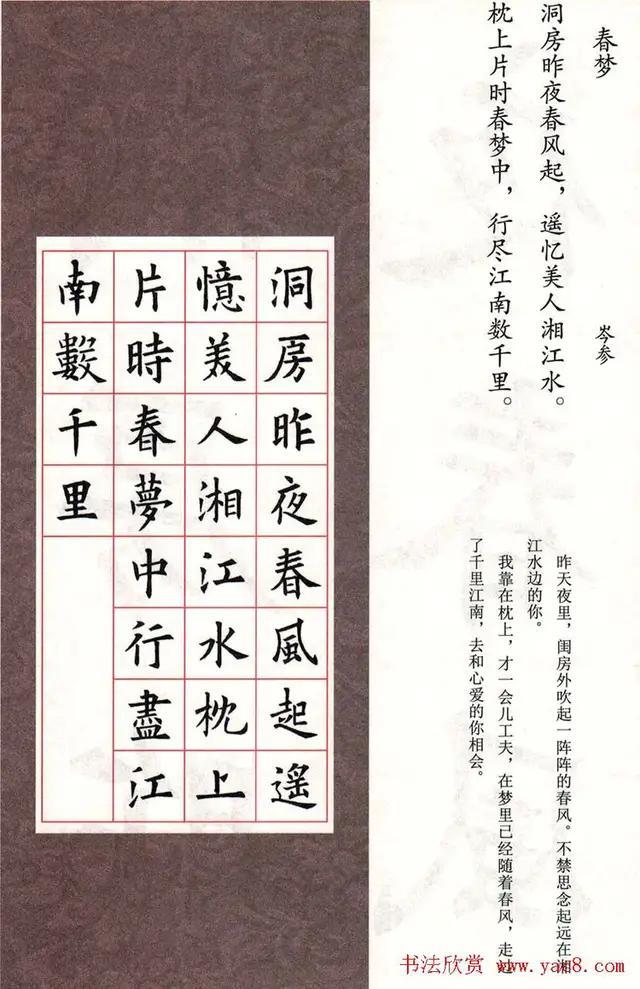 春梦
岑参
洞房昨夜春风起，遥忆美人湘江水。
枕上片时春梦中，行尽江南数千里。
昨天夜里，闺房外吹起一阵阵的春风。不禁思念起远在湘
江水边的你。
我靠在枕上，才一会儿工夫，在梦里已经随着春风，走过
了千里江南，去和心爱的你相会。
洞房昨夜春風起遥
憶美人湘江水枕上
片時春夢中行盡江
南數千里
书法欣赏 www.yac8.com